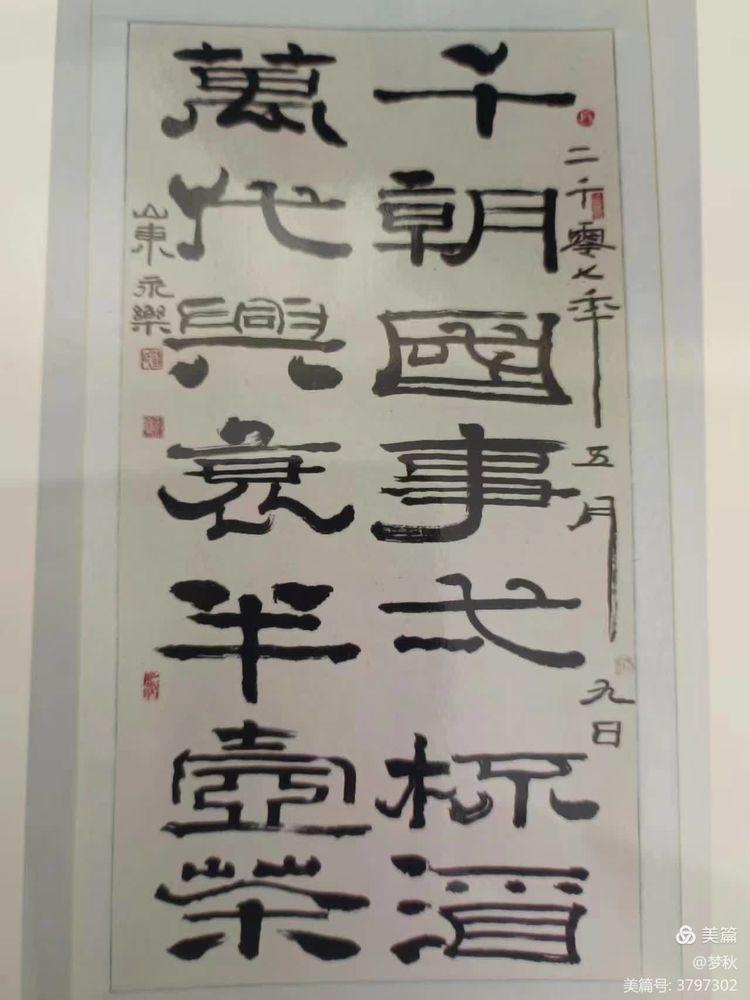 二千零七年五月九日
千朝國事弌杯酒
萬代興衰半壺茶
山東永樂
美篇
@梦秋
美篇号: 3797302